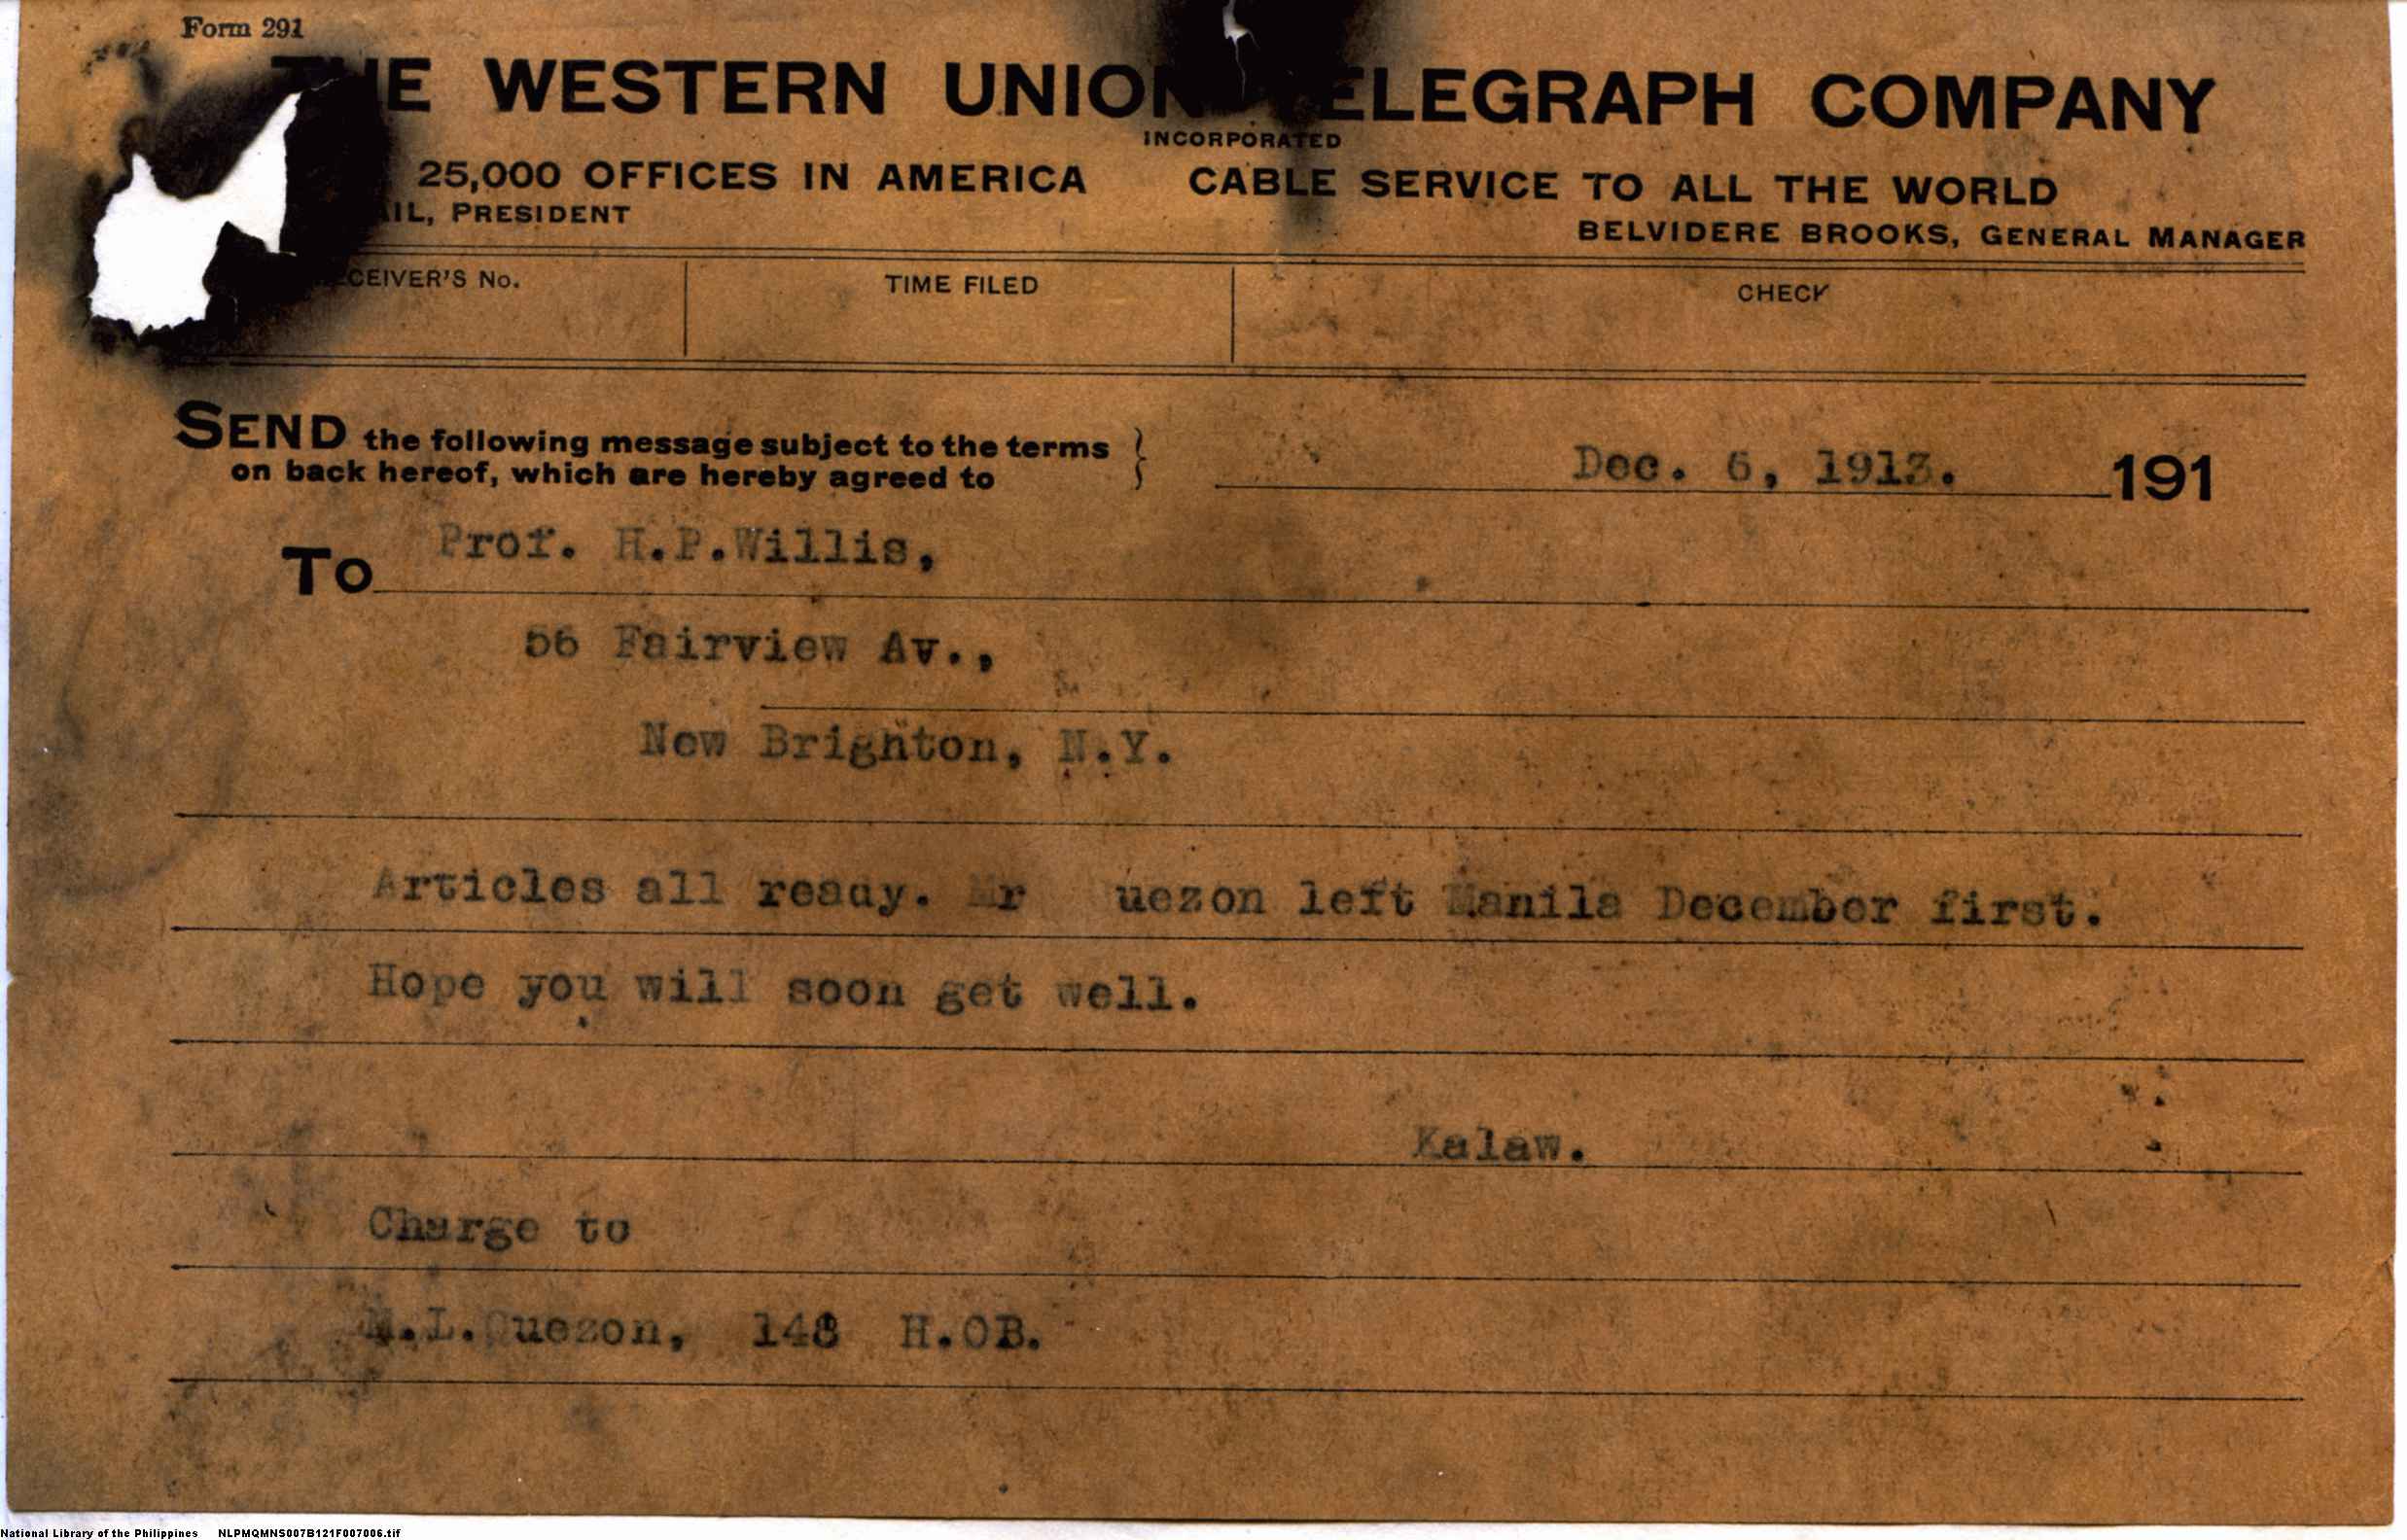 Form 291
THE WESTERN UNION TELEGRAPH COMPANY
INCORPORATED
25,000 OFFICES IN AMERICA CABLE SERVICE TO ALL THE WORLD
AIL, PRESIDENT BELVIDERE BROOKS, GENERAL MANAGER
CEIVER'S No. TIME FILED CHECK
SEND the following message subject to the terms
on back hereof, which are hereby agreed to
Dec. 6, 1913. 191
To Prof. H.P.Willis,
56 Fairview Av.,
New Brighton, N.Y.
Articles all ready. Mr uezon left Manila December first.
Hope you will soon get well.
Kalaw.
Charge to
M.L.Quezon, 148 H.OB.
National Library of the Philippines NLPMQMNS007B121F007006.tif